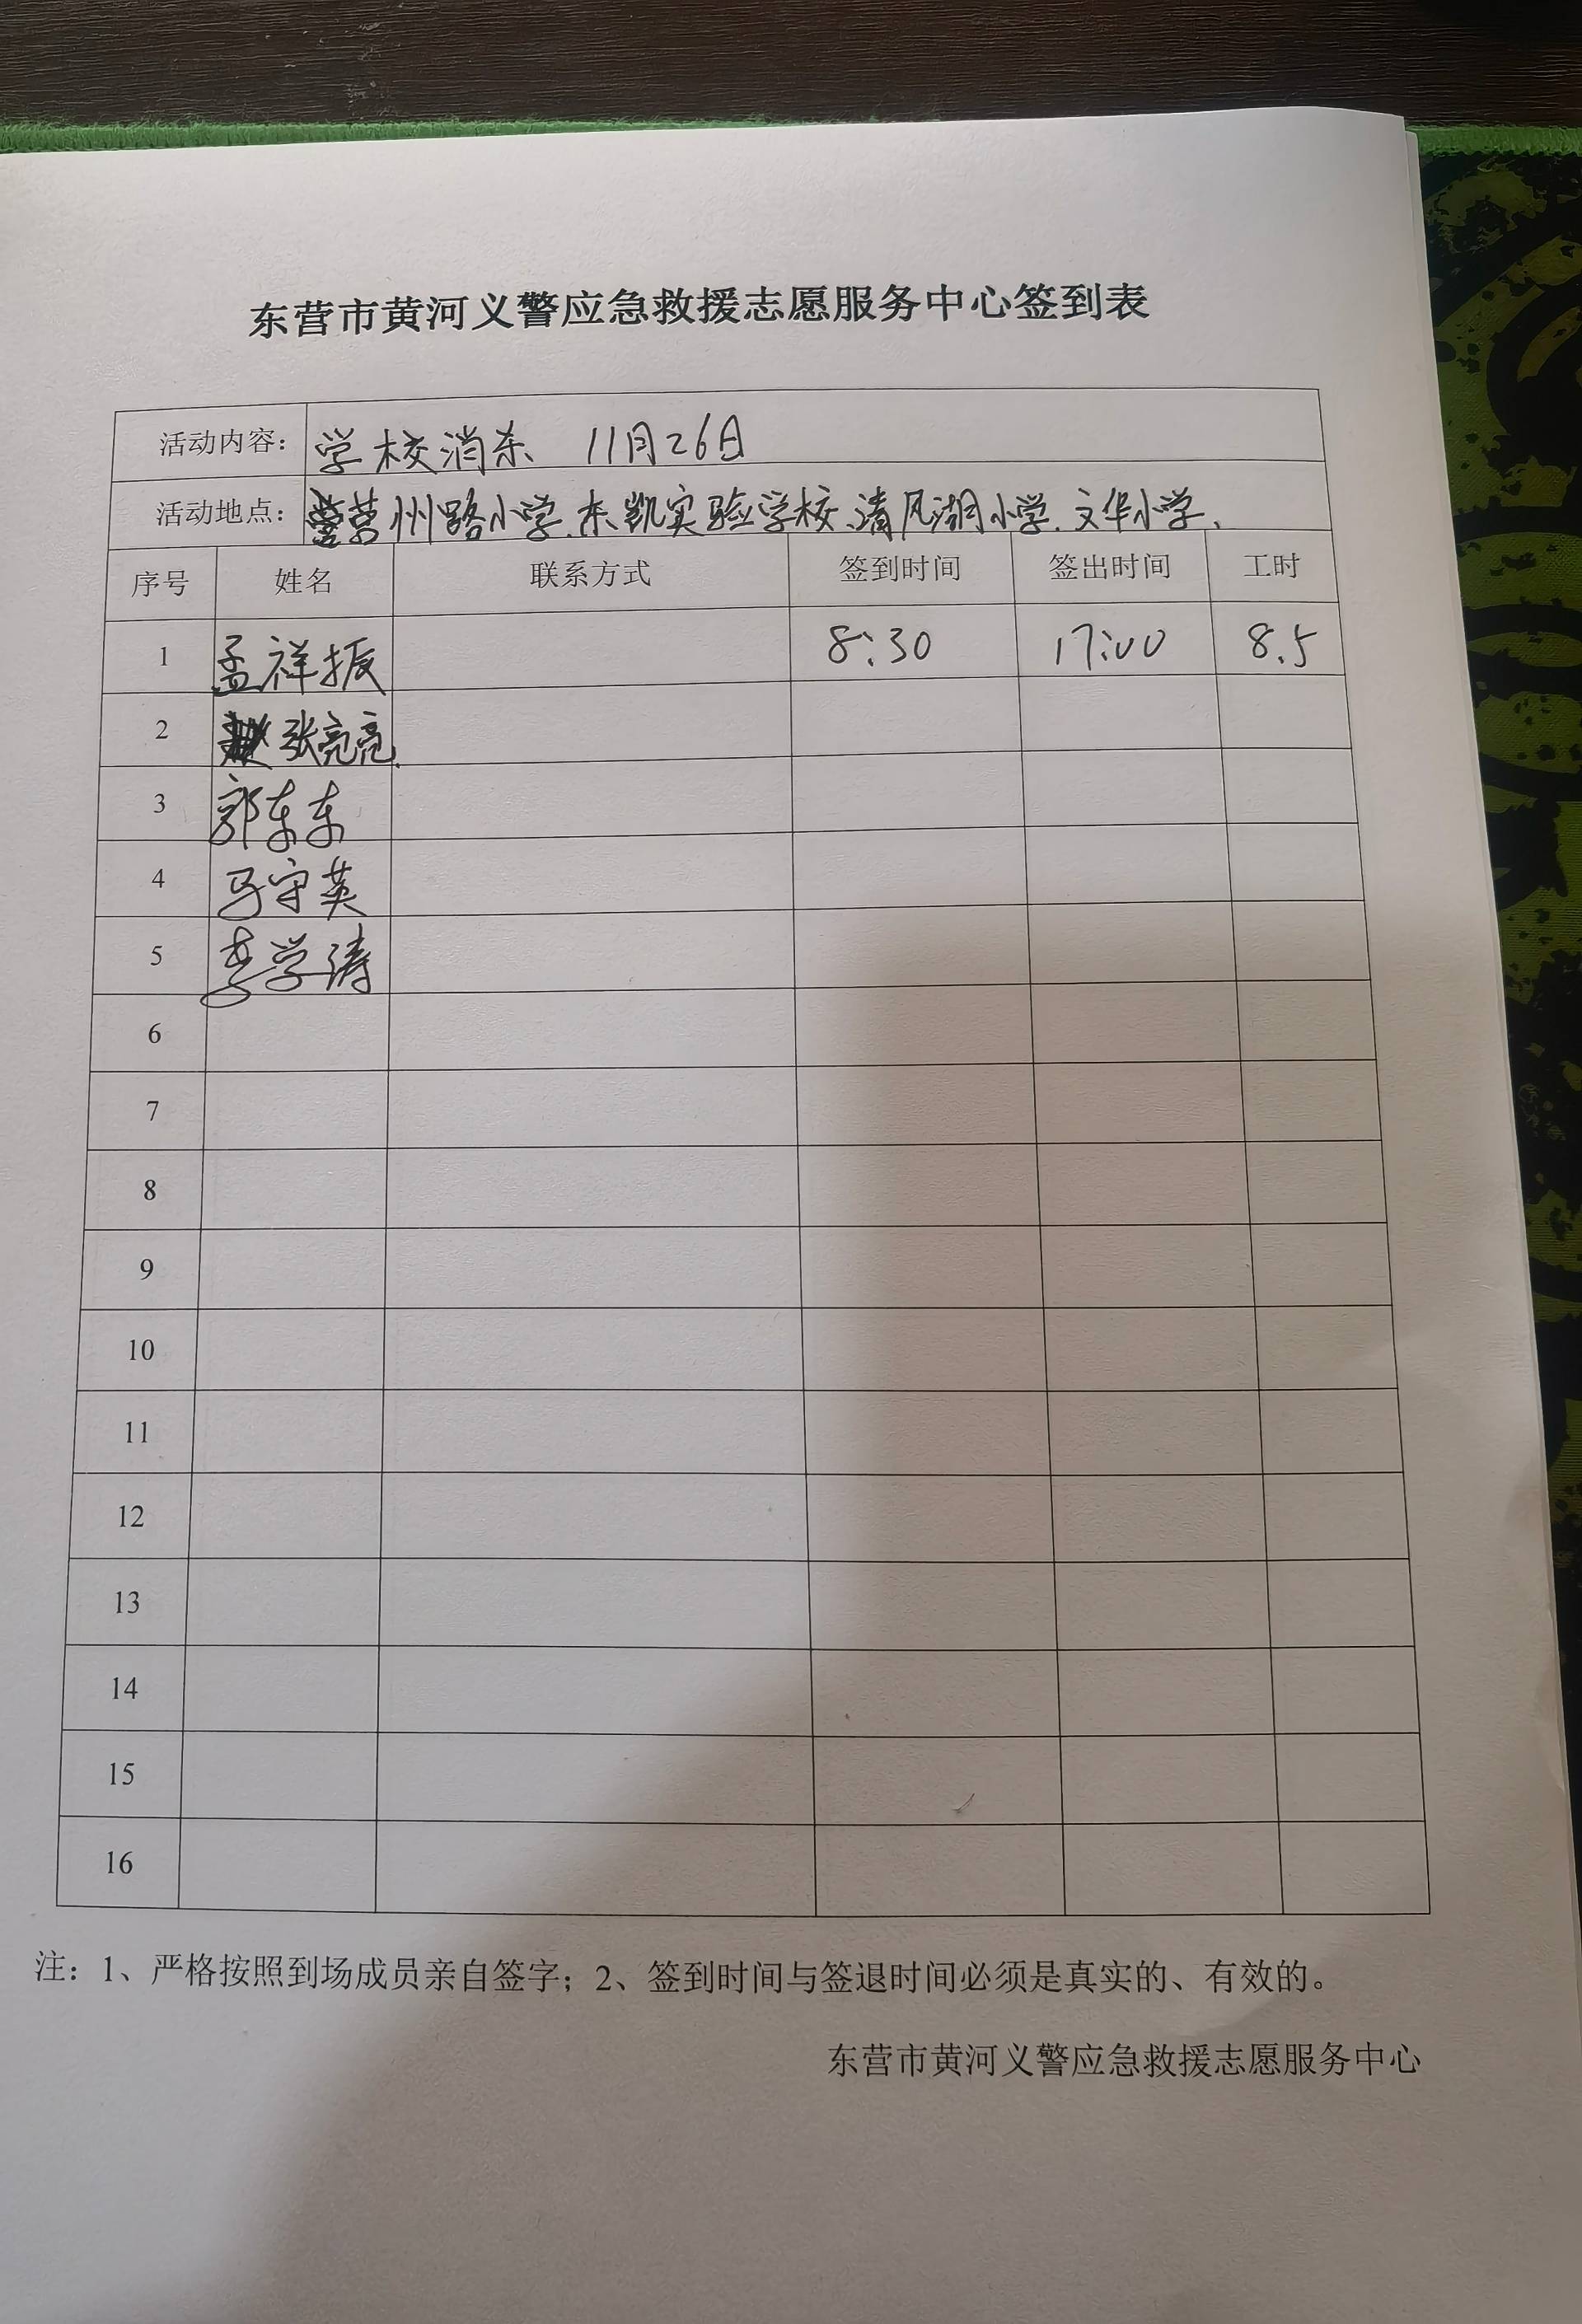 东营市黄河义警应急救援志愿服务中心签到表
活动内容： 学校消杀 11月26日
活动地点： 莒州路小学、东凯实验学校、清风湖小学、文华小学、
序号 姓名 联系方式 签到时间 签出时间 工时
1 孟祥振 8:30 17:00 8.5
2 张亮亮
3 郭东东
4 马守英
5 李学涛
6
7
8
9
10
11
12
13
14
15
16
注：1、严格按照到场成员亲自签字；2、签到时间与签退时间必须是真实的、有效的。
东营市黄河义警应急救援志愿服务中心